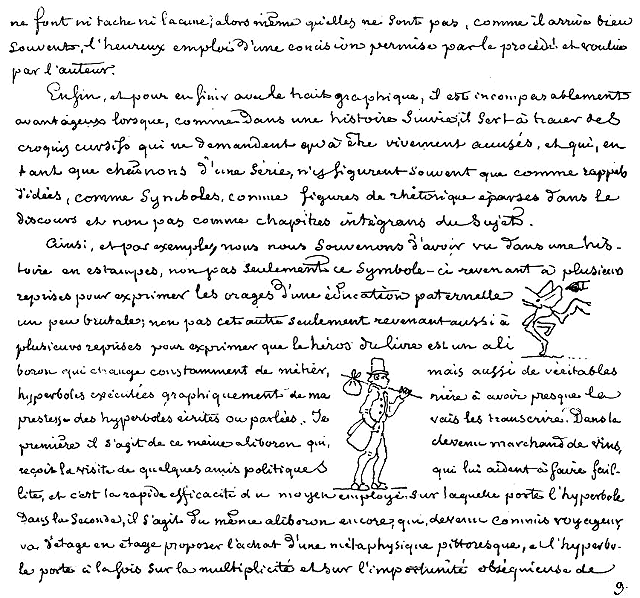 ne font ni tache ni lacune; alors même qu'elles ne sont pas, comme il arrive bien
souvent, l'heureux emploi d'une concision permise par le procédé et voulue
par l'auteur.
Enfin, et pour en finir avec le trait graphique, il est incomparablement
avantageux lorsque, comme dans une histoire suivie, il sert à tracer des
croquis cursifs qui ne demandent qu'à être vivement accusés, et qui, en
tant que chaînons d'une série, n'y figurent souvent que comme rappels
d'idées, comme symboles, comme figures de rhétorique éparses dans le
discours et non pas comme chapitres intégrans du sujet.
Ainsi, et par exemple, nous nous souvenons d'avoir vu dans une his-
toire en estampes, non pas seulement ce symbole-ci revenant à plusieurs
reprises pour exprimer les orages d'une éducation paternelle
un peu brutale; non pas cet autre seulement revenant aussi à
plusieurs reprises pour exprimer que le héros du livre est un ali
boron qui change constamment de métier, mais aussi de véritables
hyperboles exécutées graphiquement de ma nière à avoir presque la
prestesse des hyperboles écrites ou parlées. Je vais les transcrire. Dans la
première il s'agit de ce même aliboron qui, devenu marchand de vins,
reçoit la visite de quelques amis politiques qui lui aident à faire fail-
lite, et c'est la rapide efficacité du moyen employé, sur laquelle porte l'hyperbole
Dans la seconde, il s'agit du même aliboron encore, qui, devenu commis voyageur,
va d'étage en étage proposer l'achat d'une métaphysique pittoresque, et l'hyperbo-
le porte à la fois sur la multiplicité et sur l'importunité obséquieuse de
9.